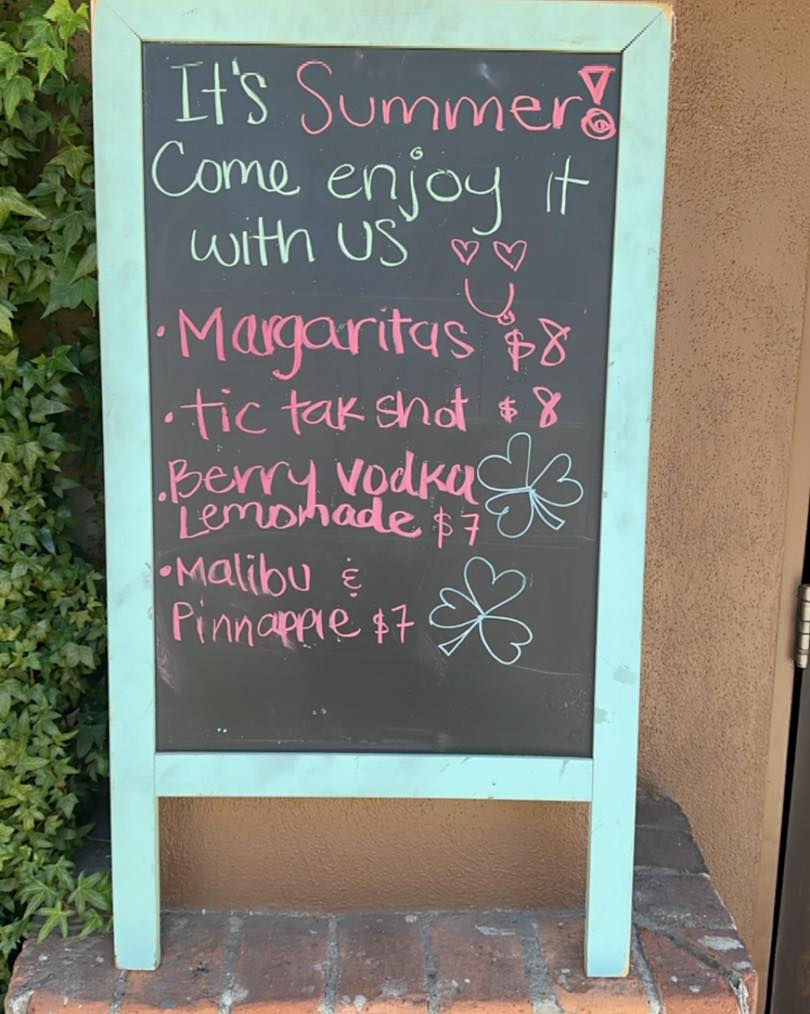 It's Summer!
Come enjoy it
with US
• Margaritas $8
• tic tak shot $8
• Berry Vodka
Lemonade $7
• Malibu &
Pinnapple $7